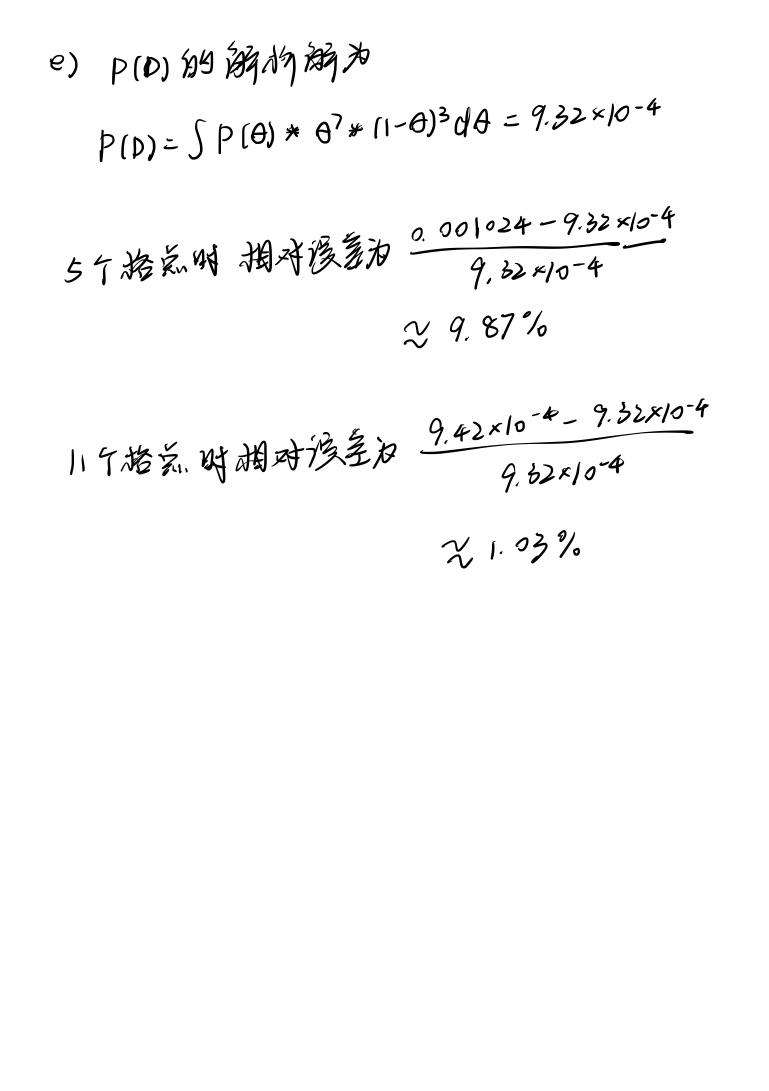 e) P(D)的解析解为
P(D)=∫P(θ)*θ⁷*(1-θ)³dθ=9.32×10⁻⁴
5个格点时 相对误差为 0.001024-9.32×10⁻⁴
9.32×10⁻⁴
≈9.87%
11个格点时相对误差为 9.42×10⁻⁴-9.32×10⁻⁴
9.32×10⁻⁴
≈1.03%